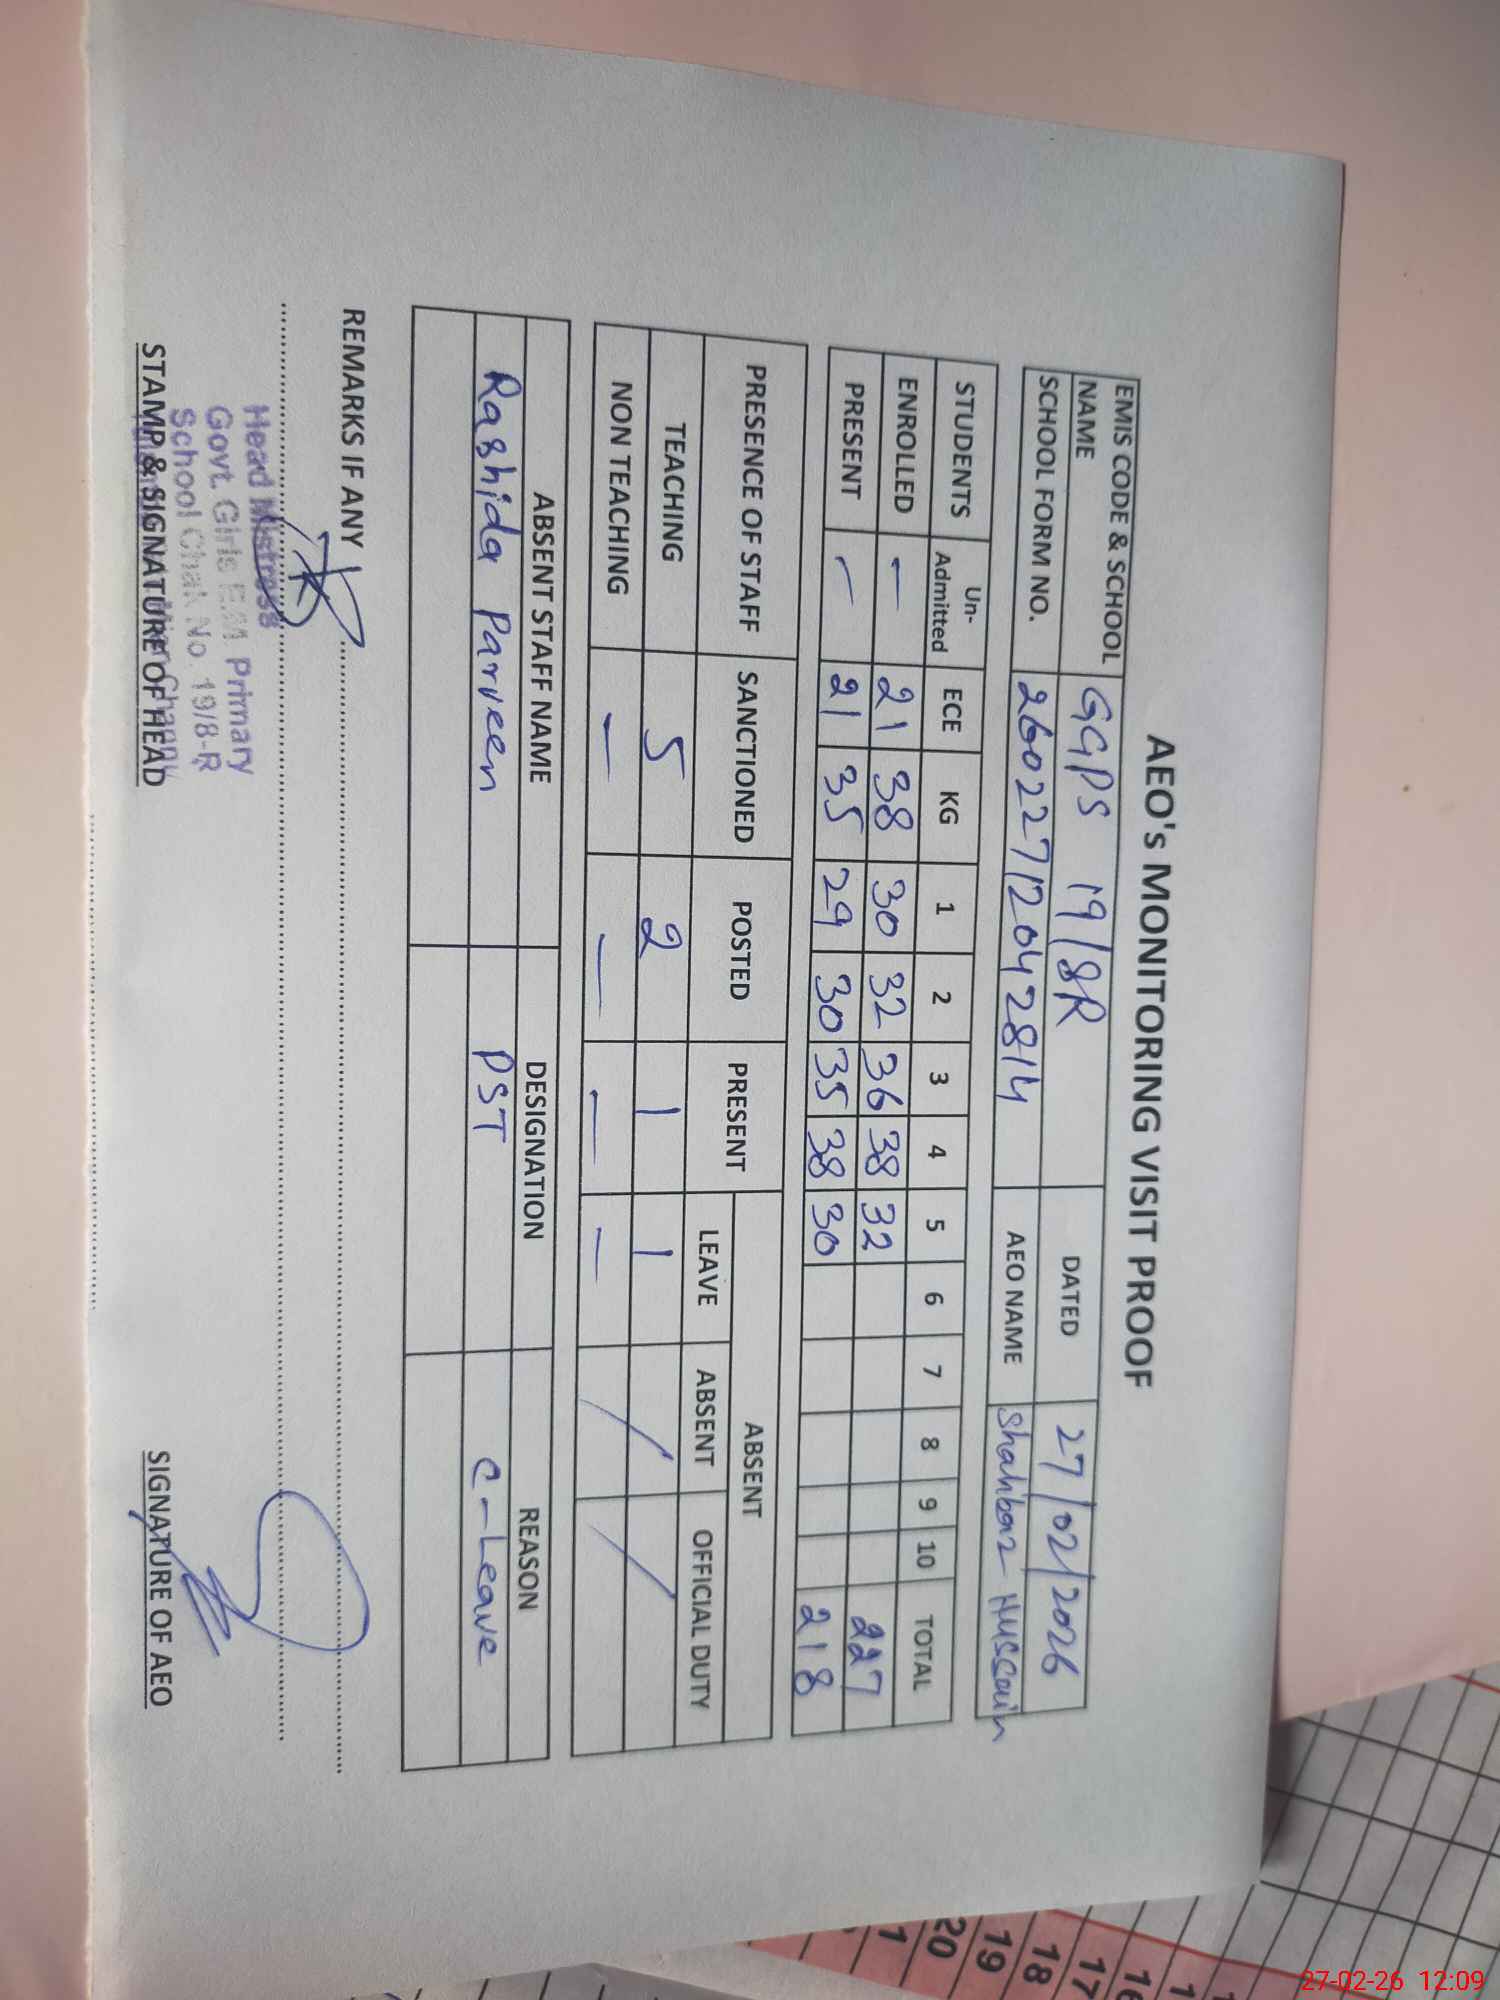 AEO's MONITORING VISIT PROOF
EMIS CODE & SCHOOL NAME GGPS 19/8R DATED 27/02/2026
SCHOOL FORM NO. 26022712042814 AEO NAME Shahbaz Hussain
STUDENTS Un-Admitted ECE KG 1 2 3 4 5 6 7 8 9 10 TOTAL
ENROLLED — 21 38 30 32 36 38 32 227
PRESENT — 21 35 29 30 35 38 30 218
PRESENCE OF STAFF SANCTIONED POSTED PRESENT ABSENT
LEAVE ABSENT OFFICIAL DUTY
TEACHING 5 2 1 1 / /
NON TEACHING — — — —
ABSENT STAFF NAME DESIGNATION REASON
Rashida Parveen PST C-Leave
REMARKS IF ANY
Head Mistress
Govt. Girls E/M Primary
School Chak No. 19/8-R
STAMP & SIGNATURE OF HEAD SIGNATURE OF AEO
16
17
18
19
20
27-02-26 12:09